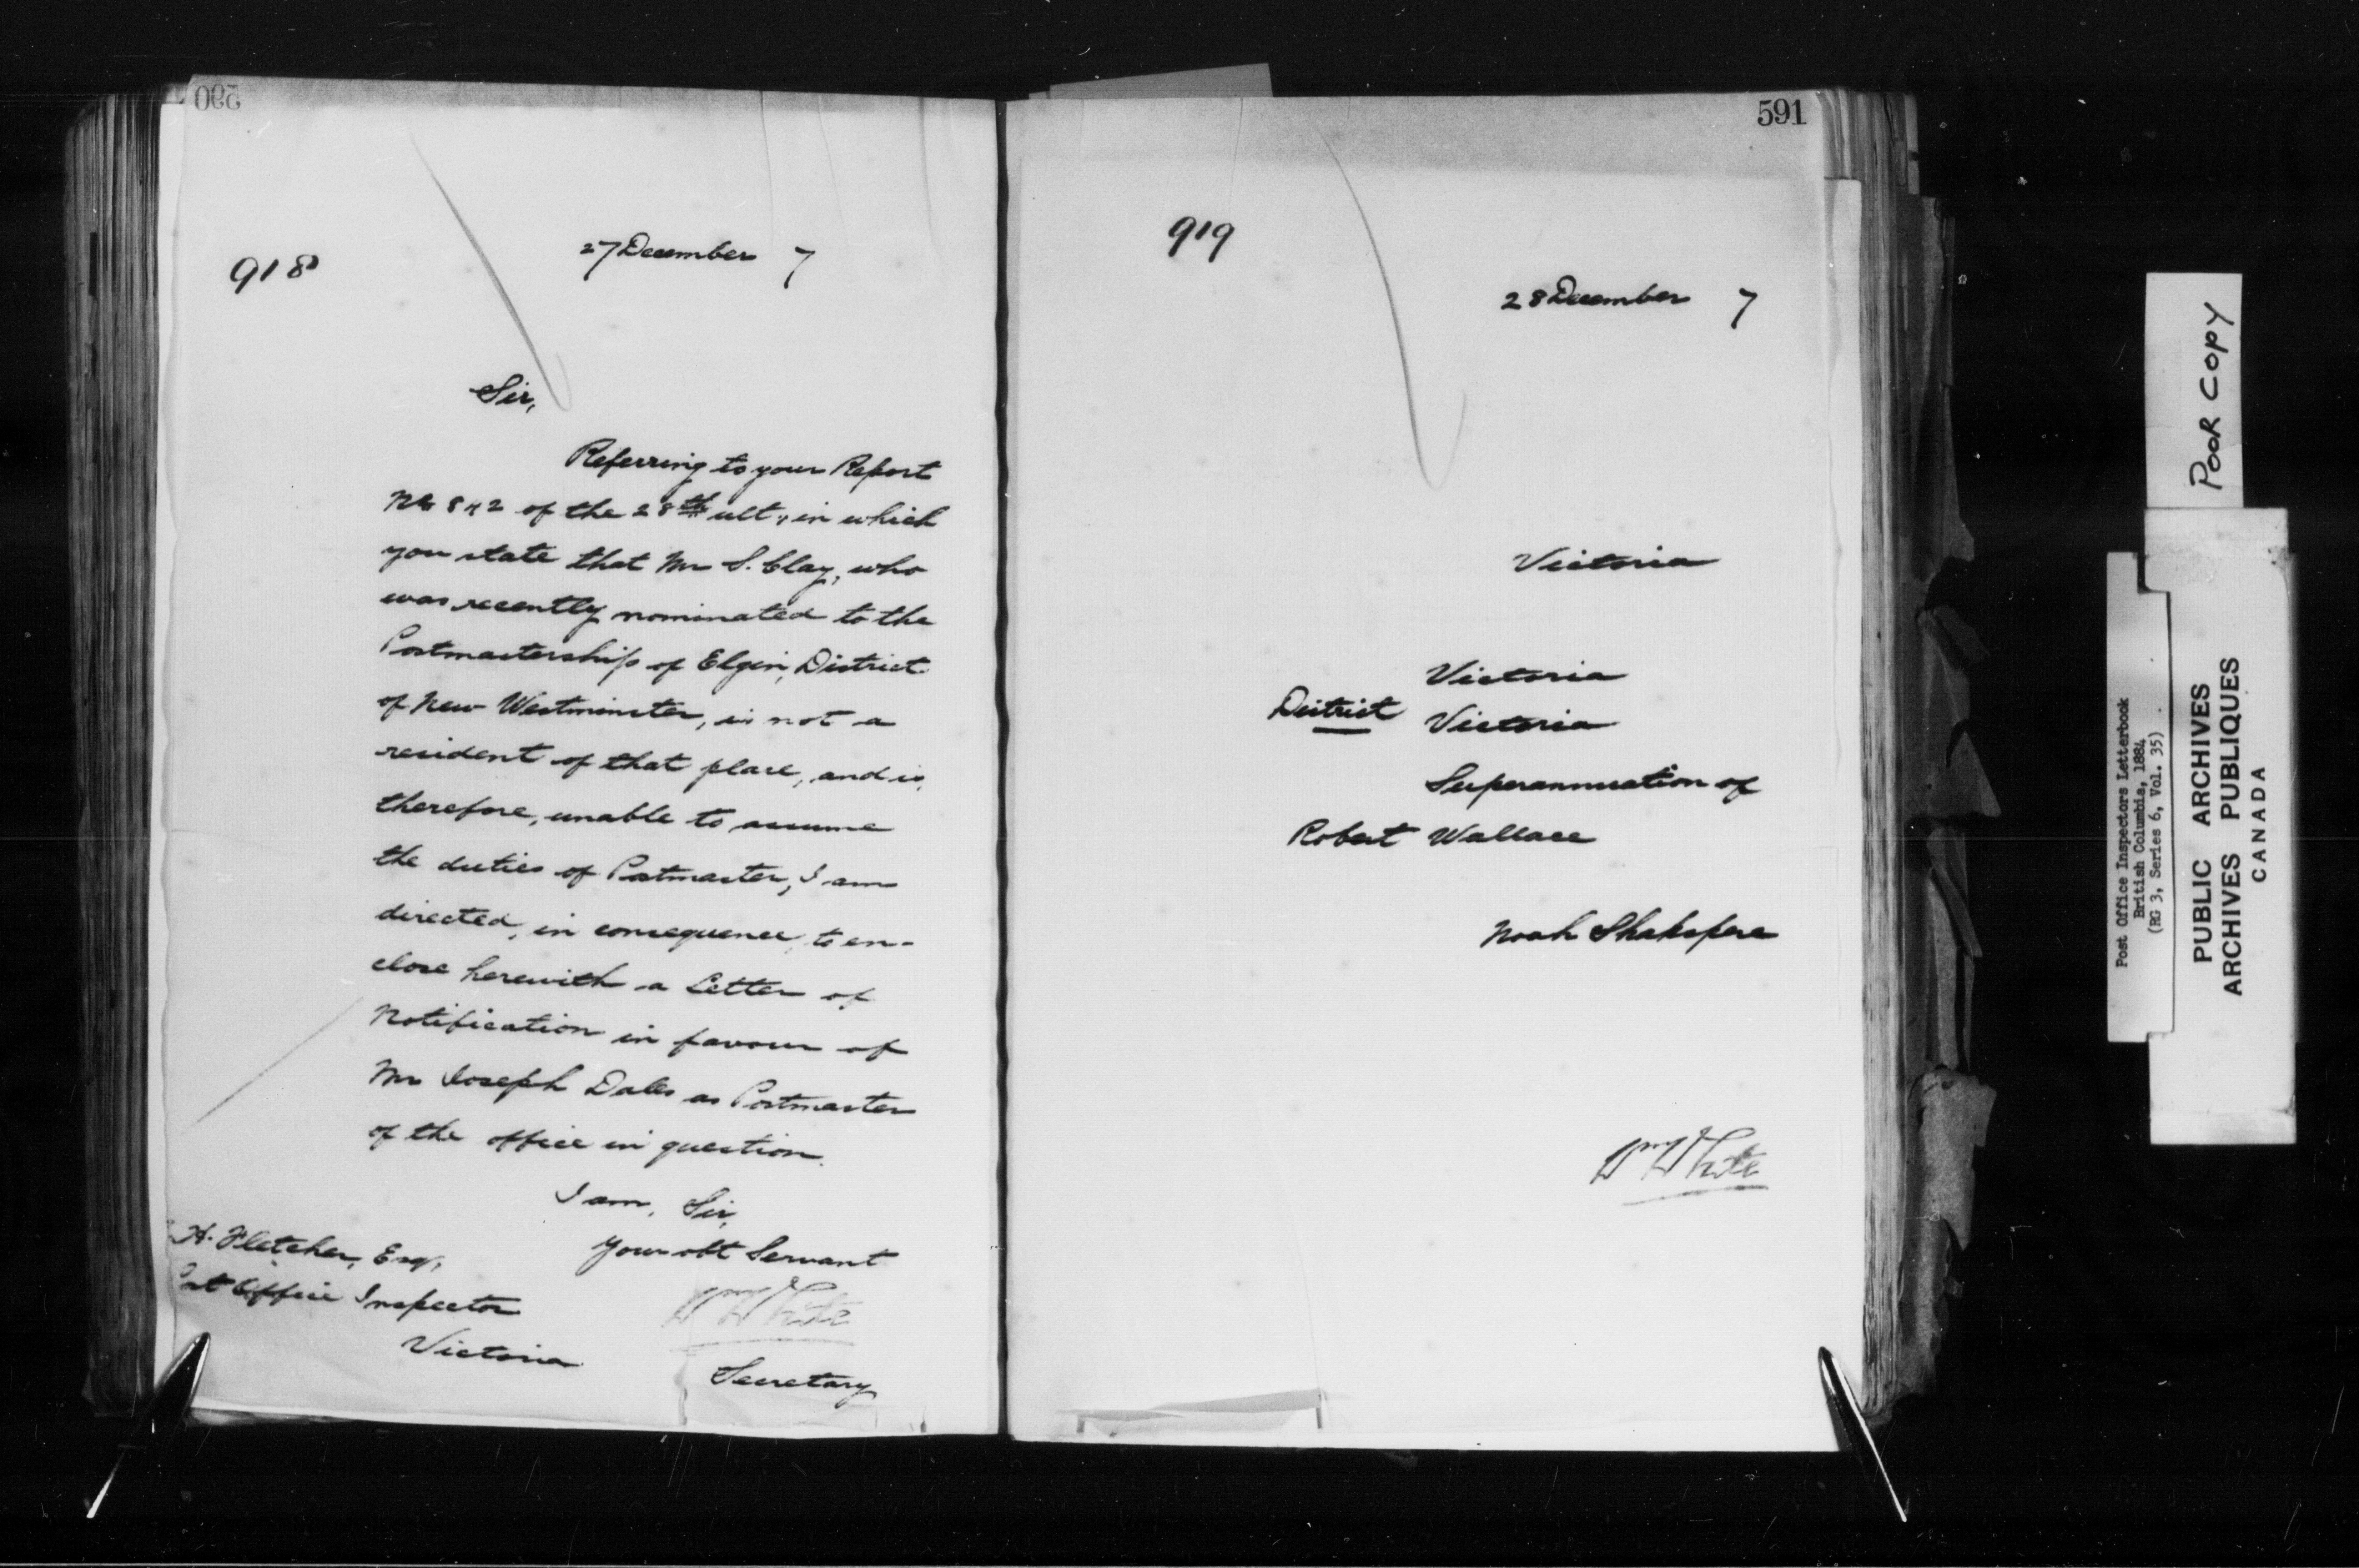 590
918
27 December 7
Sir,
Referring to your Report
No 842 of the 28th ult, in which
you state that Mr S. Clay, who
was recently nominated to the
Postmastership of Elgin, District
of New Westminster, is not a
resident of that place, and is,
therefore, unable to assume
the duties of Postmaster, I am
directed, in consequence, to en-
close herewith a Letter of
Notification in favour of
Mr Joseph Dales as Postmaster
of the office in question.
I am, Sir,
Your obt Servant
Wm White
Secretary
H. Fletcher, Esq,
Post Office Inspector
Victoria
591
919
28 December 7
Victoria
Victoria
District Victoria
Superannuation of
Robert Wallace
Noah Shakspere
Wm White
POOR COPY
Post Office Inspectors Letterbook
British Columbia, 1884
(RG 3, Series 6, Vol. 35)
PUBLIC ARCHIVES
ARCHIVES PUBLIQUES
CANADA